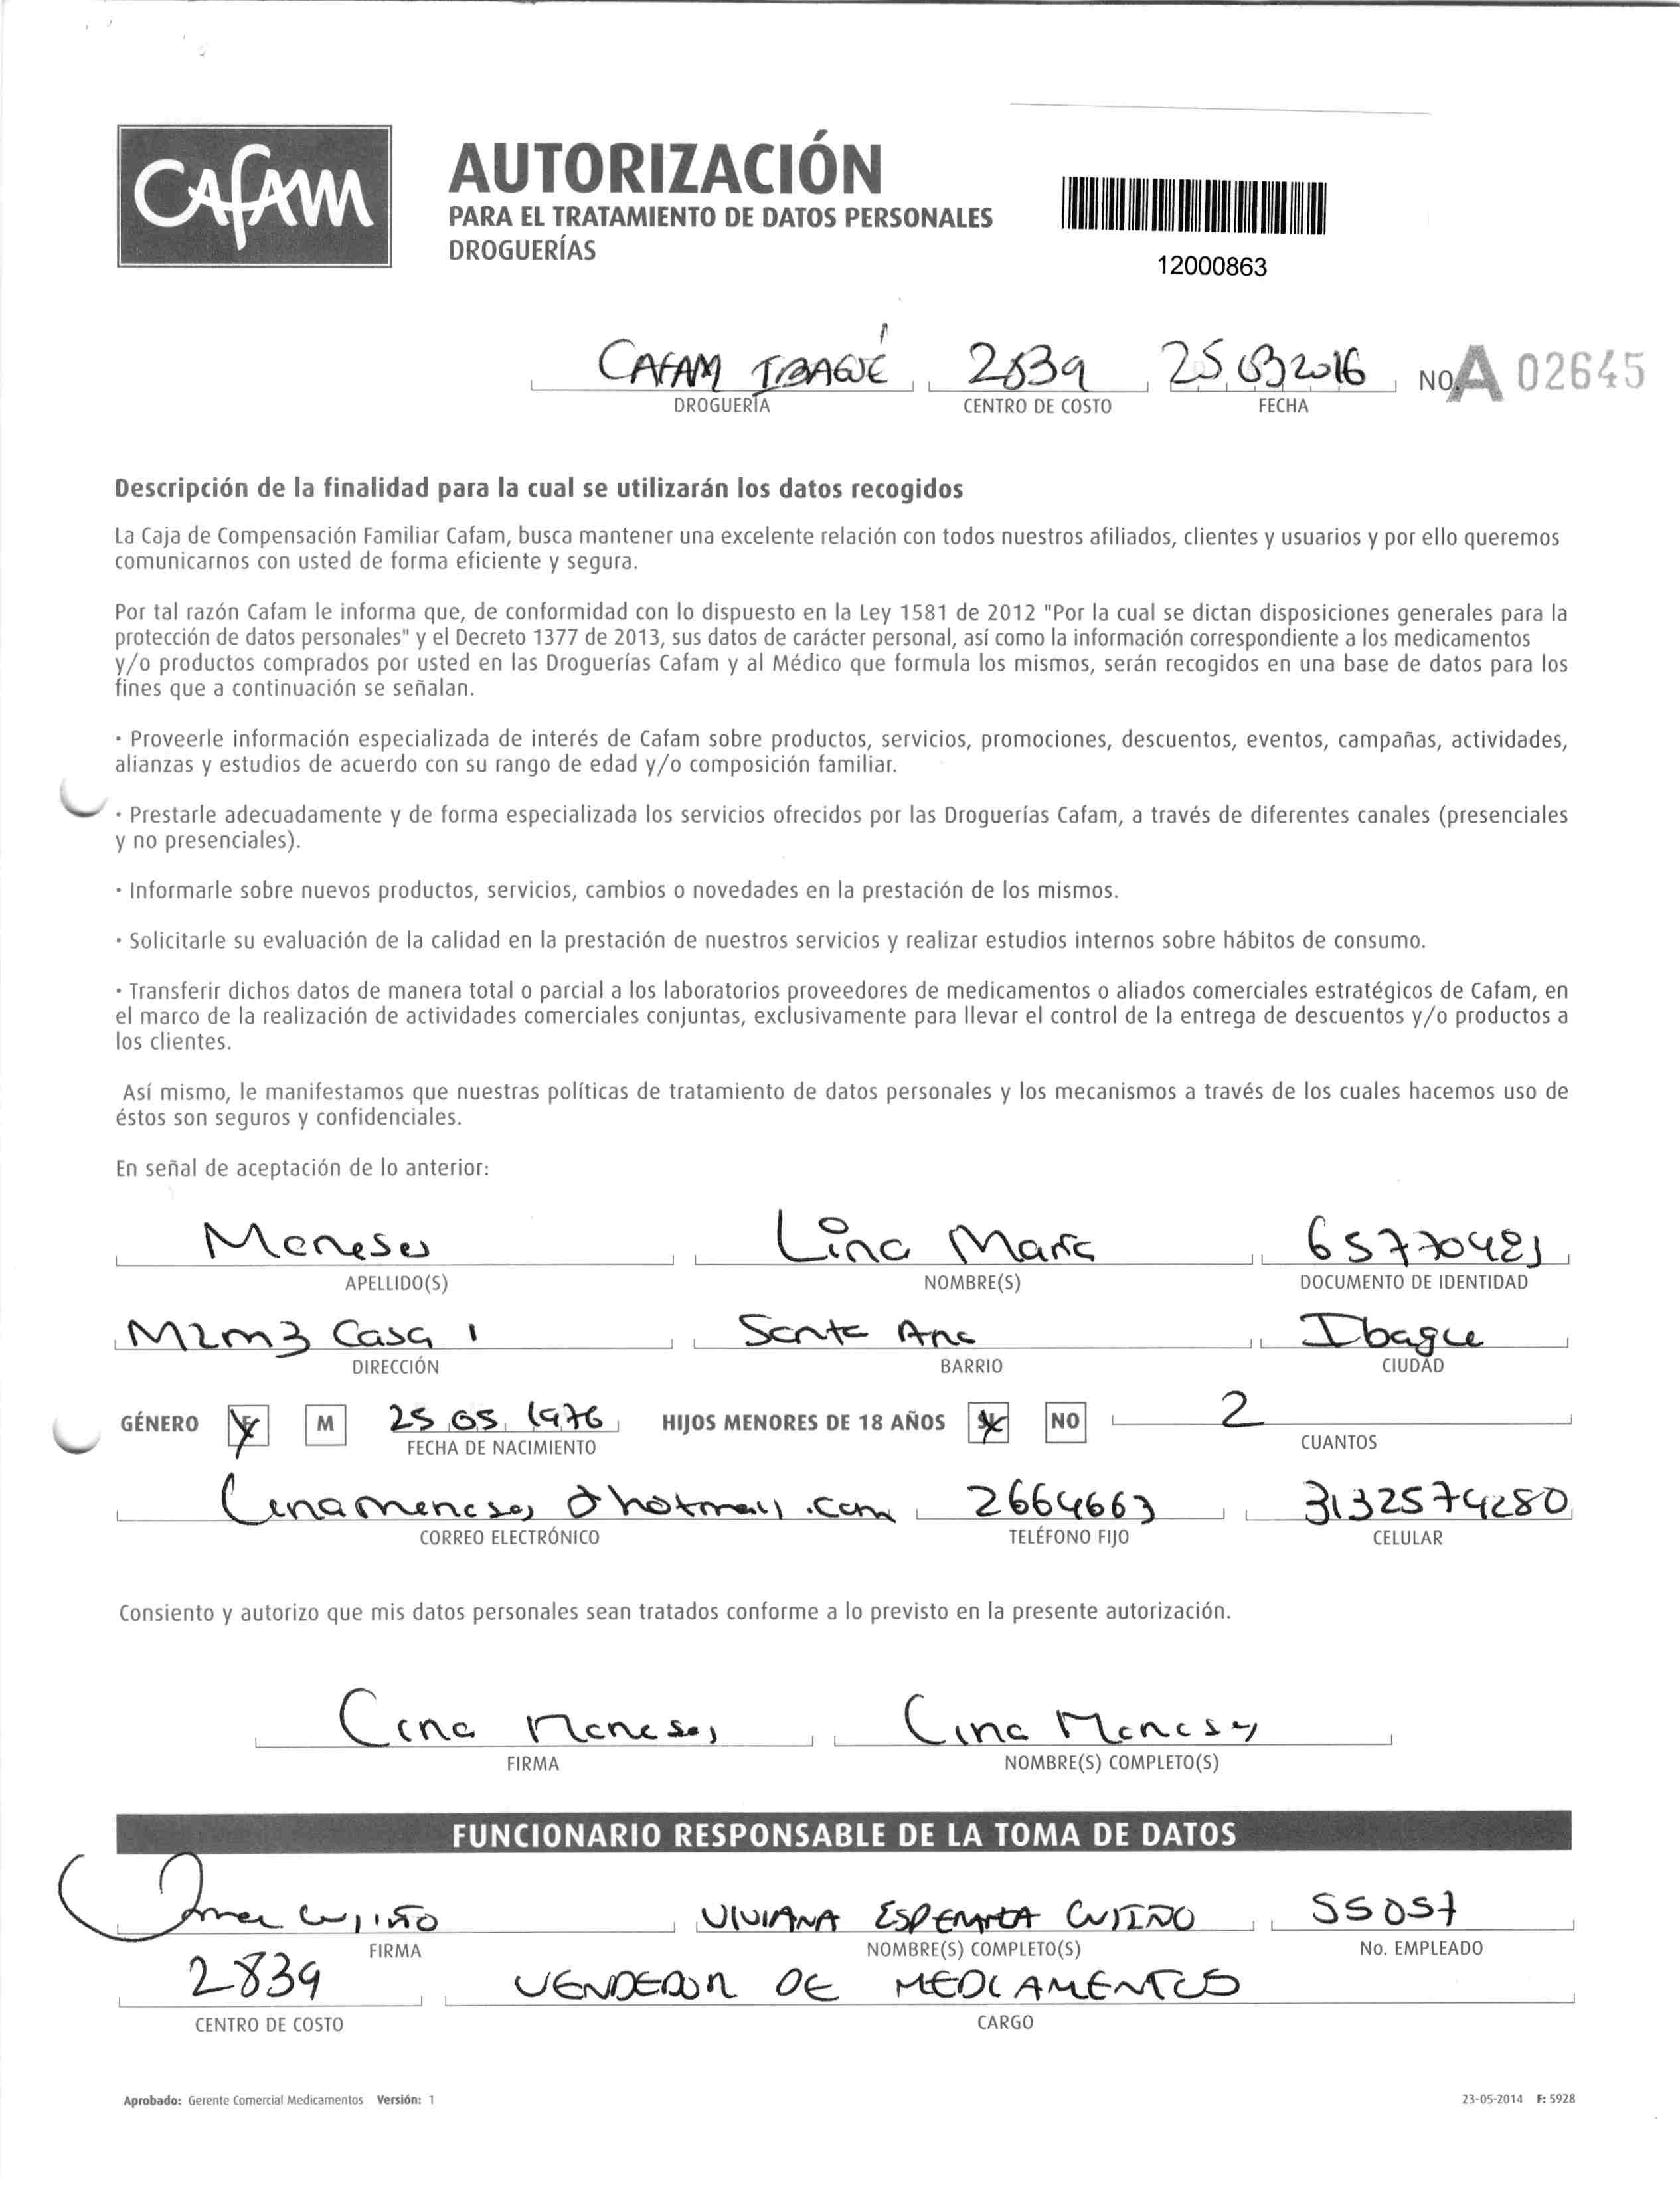 Cafam
AUTORIZACIÓN
PARA EL TRATAMIENTO DE DATOS PERSONALES
DROGUERÍAS
12000863
CAFAM IBAGUÉ 2839 25 03 2016 NO. A 02645
DROGUERÍA CENTRO DE COSTO FECHA
Descripción de la finalidad para la cual se utilizarán los datos recogidos
La Caja de Compensación Familiar Cafam, busca mantener una excelente relación con todos nuestros afiliados, clientes y usuarios y por ello queremos
comunicarnos con usted de forma eficiente y segura.
Por tal razón Cafam le informa que, de conformidad con lo dispuesto en la Ley 1581 de 2012 "Por la cual se dictan disposiciones generales para la
protección de datos personales" y el Decreto 1377 de 2013, sus datos de carácter personal, así como la información correspondiente a los medicamentos
y/o productos comprados por usted en las Droguerías Cafam y al Médico que formula los mismos, serán recogidos en una base de datos para los
fines que a continuación se señalan.
· Proveerle información especializada de interés de Cafam sobre productos, servicios, promociones, descuentos, eventos, campañas, actividades,
alianzas y estudios de acuerdo con su rango de edad y/o composición familiar.
· Prestarle adecuadamente y de forma especializada los servicios ofrecidos por las Droguerías Cafam, a través de diferentes canales (presenciales
y no presenciales).
· Informarle sobre nuevos productos, servicios, cambios o novedades en la prestación de los mismos.
· Solicitarle su evaluación de la calidad en la prestación de nuestros servicios y realizar estudios internos sobre hábitos de consumo.
· Transferir dichos datos de manera total o parcial a los laboratorios proveedores de medicamentos o aliados comerciales estratégicos de Cafam, en
el marco de la realización de actividades comerciales conjuntas, exclusivamente para llevar el control de la entrega de descuentos y/o productos a
los clientes.
Así mismo, le manifestamos que nuestras políticas de tratamiento de datos personales y los mecanismos a través de los cuales hacemos uso de
éstos son seguros y confidenciales.
En señal de aceptación de lo anterior:
Meneses Lina Maria 65770481
APELLIDO(S) NOMBRE(S) DOCUMENTO DE IDENTIDAD
M2m3 Casa 1 Santa Ana Ibague
DIRECCIÓN BARRIO CIUDAD
GÉNERO F M 25 05 1976 HIJOS MENORES DE 18 AÑOS SI NO 2
FECHA DE NACIMIENTO CUANTOS
Linameneses@hotmail.com 2664663 3132574280
CORREO ELECTRÓNICO TELÉFONO FIJO CELULAR
Consiento y autorizo que mis datos personales sean tratados conforme a lo previsto en la presente autorización.
Lina Meneses Lina Meneses
FIRMA NOMBRE(S) COMPLETO(S)
FUNCIONARIO RESPONSABLE DE LA TOMA DE DATOS
Cujiño VIVIANA ESPERANZA CUJIÑO 55057
FIRMA NOMBRE(S) COMPLETO(S) No. EMPLEADO
2839 VENDEDOR DE MEDICAMENTOS
CENTRO DE COSTO CARGO
Aprobado: Gerente Comercial Medicamentos Versión: 1 23-05-2014 F: 5928